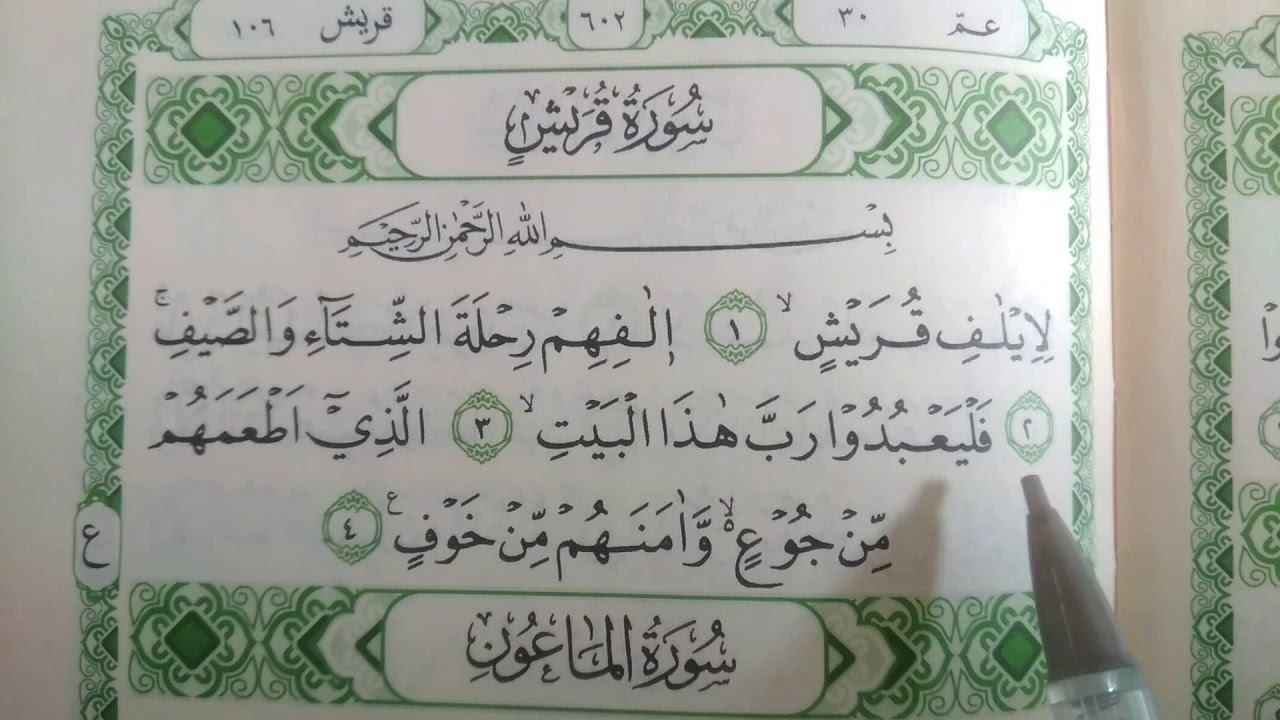 عمّ ٣٠ ٦٠٢ قريش ١٠٦
سُوْرَةُ قُرَيْشٍ
بِسْمِ اللّٰهِ الرَّحْمٰنِ الرَّحِيْمِ
لِاِيْلٰفِ قُرَيْشٍۙ ١ اٖلٰفِهِمْ رِحْلَةَ الشِّتَاۤءِ وَالصَّيْفِۚ
٢ فَلْيَعْبُدُوْا رَبَّ هٰذَا الْبَيْتِۙ ٣ الَّذِيْٓ اَطْعَمَهُمْ
مِّنْ جُوْعٍ ەۙ وَّاٰمَنَهُمْ مِّنْ خَوْفٍ ࣖ ٤
ع
سُوْرَةُ الْمَاعُوْنِ